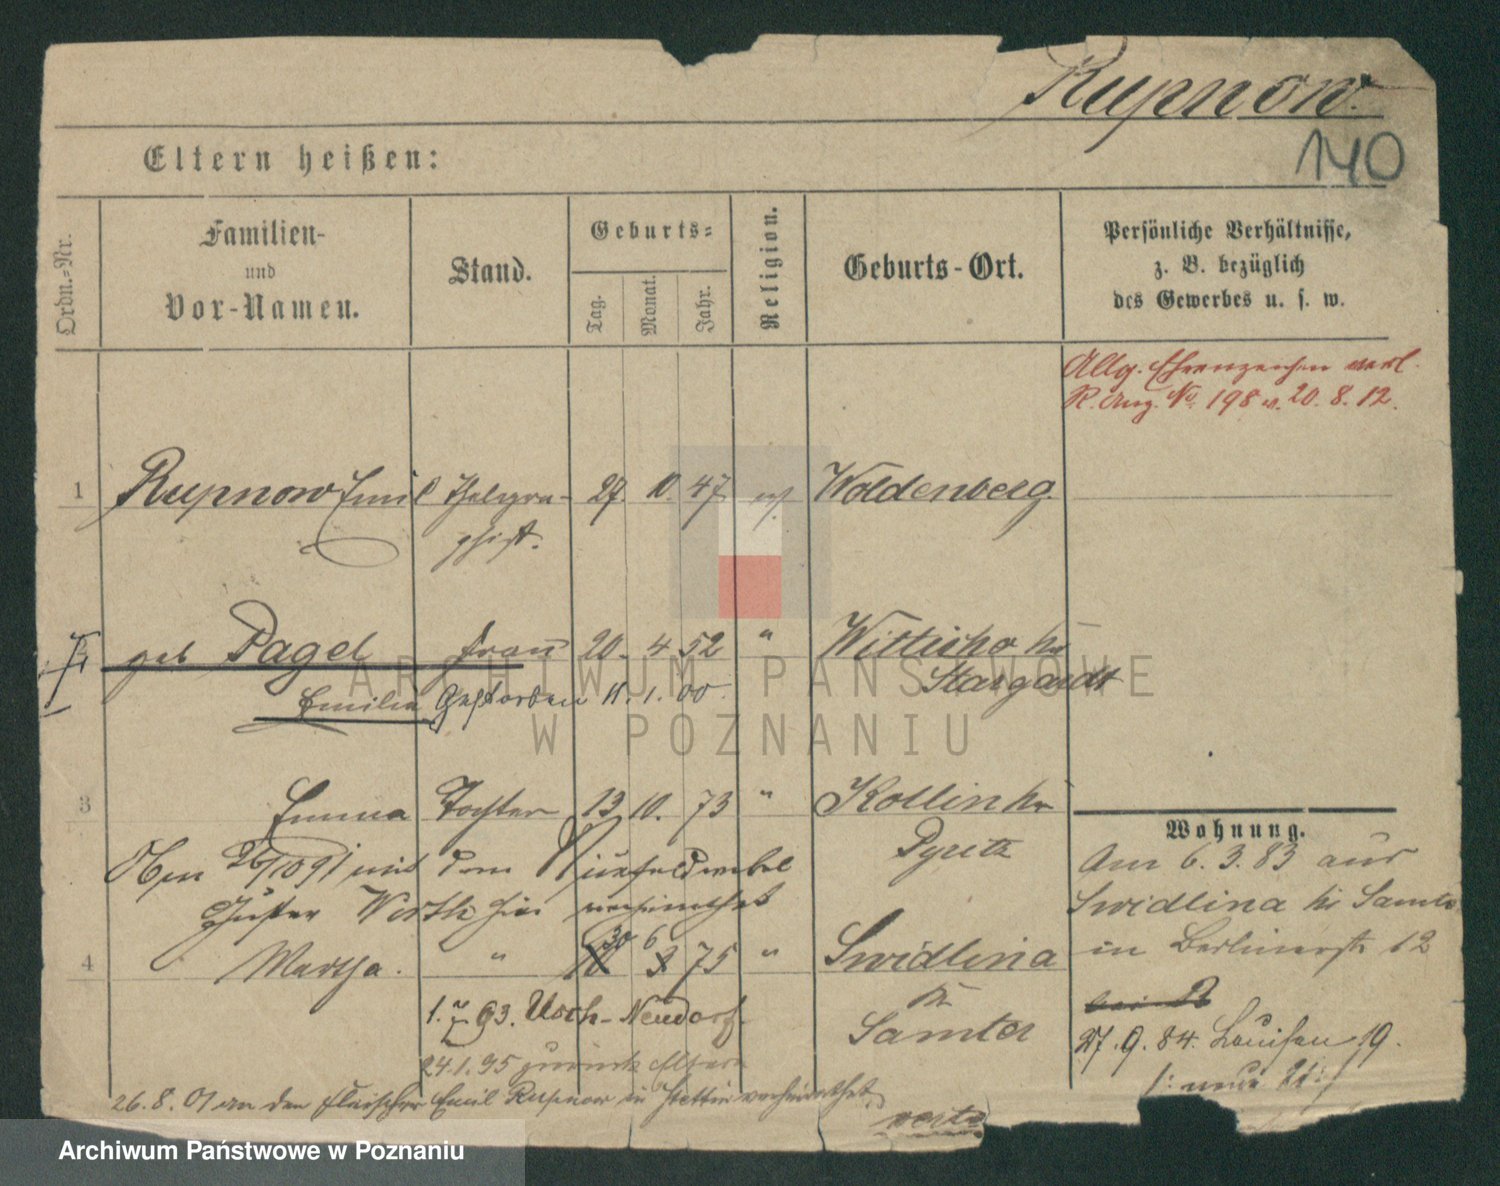 Rupnow.
140
Eltern heißen:
Ordn.-Nr.
Familien-
und
Vor-Namen.
Stand.
Geburts-
Tag.
Monat.
Jahr.
Religion.
Geburts-Ort.
Persönliche Verhältnisse,
z. B. bezüglich
des Gewerbes u. s. w.
Allg. Ehrenzeichen verl.
R. Anz. No. 198 v. 20. 8. 12.
1 Rupnow Emil Thelegra- 27. 10. 47 ev. Woldenberg
phist.
geb Pagel Frau 20. 4 52 " Wittichow Kr
Stargardt
Emilie Gestorben 11. 1. 00.
3 Emma Tochter 13 10. 73 " Kollin Kr
Pyritz
Am 26/10 91 mit dem
Gustav verheirathet
4 Martha. " 30 6 75 " Swidlina
Kr
Samter
1. 93. Usch-Neudorf.
24.1.95 zurück Eltern
26.8.01 an den Fleischer Emil Rupnow in Stettin verheirathet
Wohnung.
Am 6.3.83 aus
Swidlina Kr Samter
in Berlinerstr 12
27.9.84. Louisen 19.
neue
ARCHIWUM PAŃSTWOWE
W POZNANIU
Archiwum Państwowe w Poznaniu